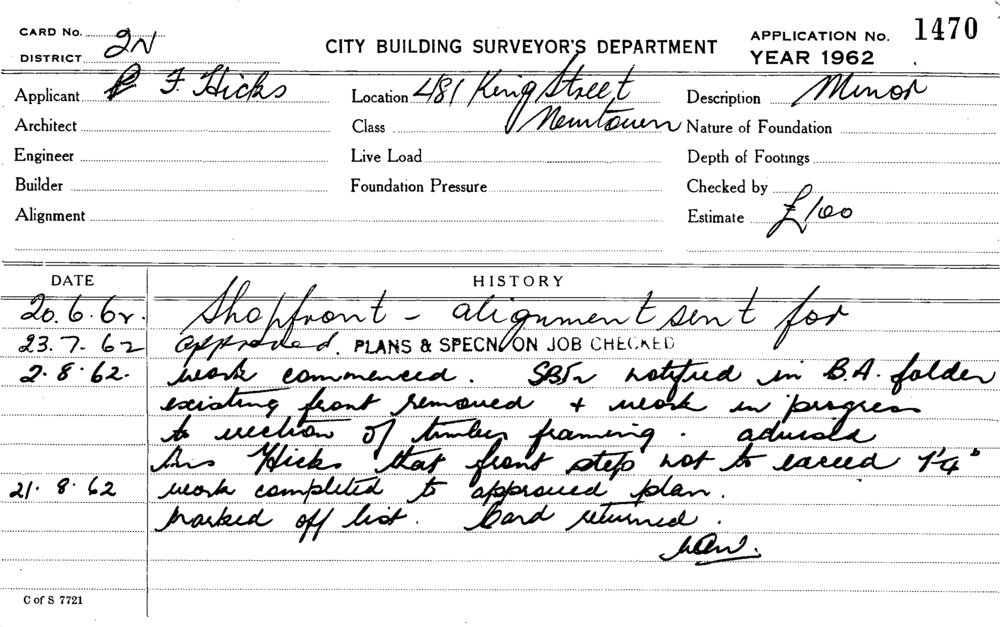 CARD No. 2N
DISTRICT
CITY BUILDING SURVEYOR'S DEPARTMENT
APPLICATION No. 1470
YEAR 1962
Applicant F. Hicks
Location 481 King Street
Newtown
Description Minor
Architect
Class
Nature of Foundation
Engineer
Live Load
Depth of Footings
Builder
Foundation Pressure
Checked by
Alignment
Estimate £100
DATE HISTORY
20.6.62. Shopfront - alignment sent for
23.7.62 approved. PLANS & SPECN. ON JOB CHECKED
2.8.62. work commenced. notified in B.A. folder
existing front removed + work in progress
to erection of timber framing. advised
Hicks that front step not to exceed 1'4"
21.8.62 work completed to approved plan.
Marked off list. Card returned.
C of S 7721